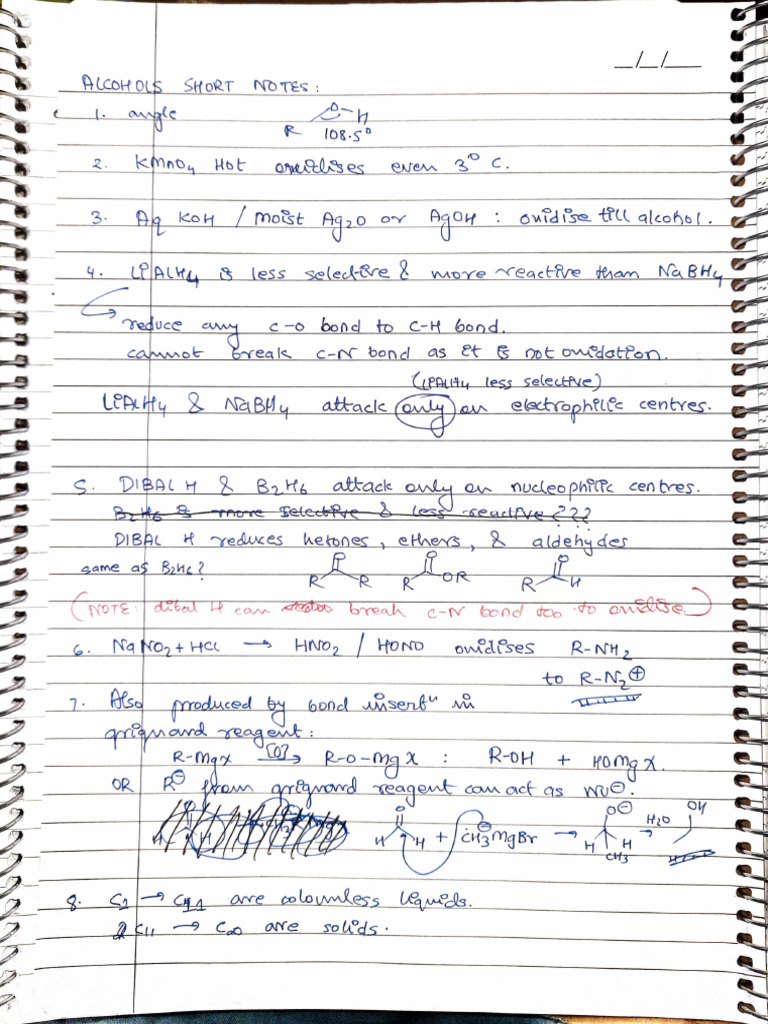 _/_/__
ALCOHOLS SHORT NOTES:
1. angle R O-H 108.5°
2. KMnO4 Hot oxidises even 3° C.
3. Aq KOH / Moist Ag2O or AgOH : oxidise till alcohol.
4. LiAlH4 is less selective & more reactive than NaBH4
reduce any C-O bond to C-H bond.
cannot break C-N bond as it is not oxidation.
(LiAlH4 less selective)
LiAlH4 & NaBH4 attack only on electrophilic centres.
5. DIBAL H & B2H6 attack only on nucleophilic centres.
B2H6 is more selective & less reactive ???
DIBAL H reduces ketones, ethers, & aldehydes
same as B2H6? R O R R O OR R O H
(NOTE: dibal H can break C-N bond too to oxidise)
6. NaNO2 + HCl → HNO2 / HONO oxidises R-NH2
to R-N2⊕
7. Also produced by bond insertⁿ in
grignard reagent:
R-MgX [O]→ R-O-MgX : R-OH + HOMgX.
OR R⊖ from grignard reagent can act as NU⊖.
H O H + ⊖CH3MgBr → O⊖ H H CH3 H2O→ OH
8. C1 → C11 are colourless liquids.
C11 → C∞ are solids.